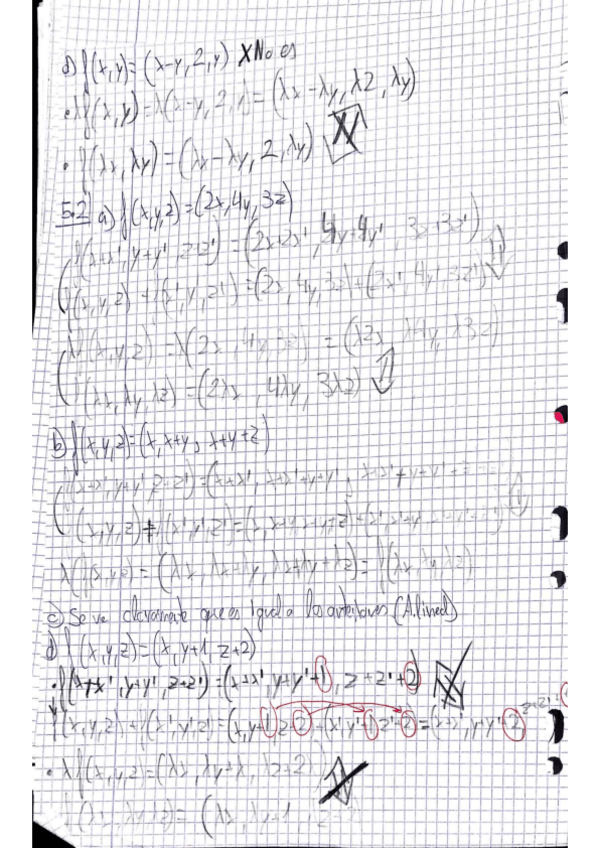 d) f(x,y)=(x-y, 2, y) X No es
• λf(x,y)=λ(x-y, 2, y)=(λx-λy, λ2, λy)
• f(λx, λy)=(λx-λy, 2, λy)
5.2 a) f(x,y,z)=(2x, 4y, 3z)
f(x+x', y+y', z+z') = (2x+2x', 4y+4y', 3z+3z')
f(x,y,z) + f(x',y',z') = (2x, 4y, 3z)+(2x', 4y', 3z')
λf(x,y,z) = λ(2x, 4y, 3z) = (λ2x, λ4y, λ3z)
f(λx, λy, λz) = (2λx, 4λy, 3λz)
b) f(x,y,z)=(x, x+y, x+y+z)
f(x+x', y+y', z+z')=(x+x', x+x'+y+y', x+x'+y+y'+
f(x,y,z)+f(x',y',z')=(x, x+y, x+y+z)+(x', x'+y'
λf(x,y,z) = (λx, λx+λy, λx+λy+λz)= f(λx, λy, λz)
c) Se ve claramente que es igual a los anteriores (A. lineal)
d) f(x,y,z)=(x, y+1, z+2)
• f(x+x', y+y', z+z')=(x+x', y+y'+1, z+z'+2)
f(x,y,z)+f(x',y',z')=(x, y+1, z+2)+(x', y'+1, z'+2)=(x+x', y+y'+2
• λf(x,y,z)=(λx, λy+λ, λz+2λ)
f(λx, λy, λz) = (λx, λy+1,